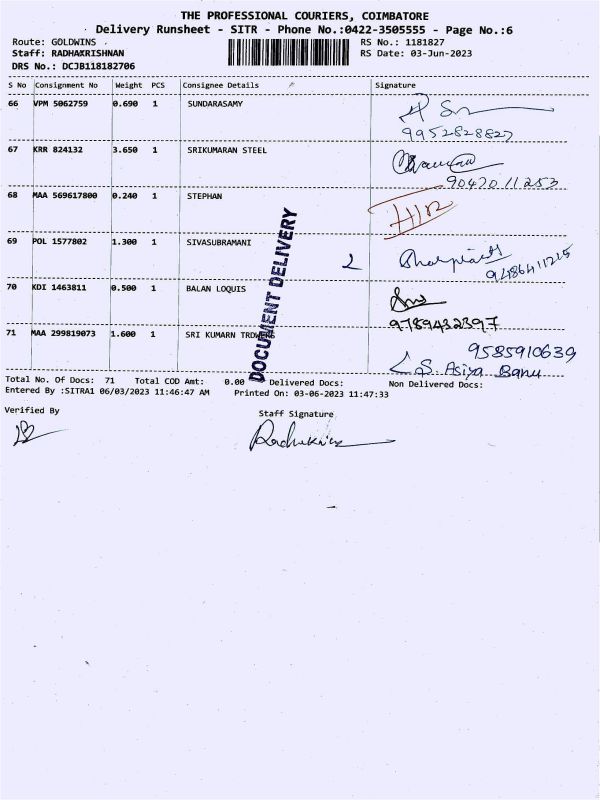 THE PROFESSIONAL COURIERS, COIMBATORE
Delivery Runsheet - SITR - Phone No.:0422-3505555 - Page No.:6
Route: GOLDWINS
RS No.: 1181827
Staff: RADHAKRISHNAN
RS Date: 03-Jun-2023
DRS No.: DCJB118182706
S No Consignment No Weight PCS Consignee Details Signature
66 VPM 5062759 0.690 1 SUNDARASAMY
9952828827
67 KRR 824132 3.650 1 SRIKUMARAN STEEL
9047011253
68 MAA 569617800 0.240 1 STEPHAN
69 POL 1577802 1.300 1 SIVASUBRAMANI
9486411215
70 KDI 1463811 0.500 1 BALAN LOQUIS
9789432397
71 MAA 299819073 1.600 1 SRI KUMARN TRDWERS
9585910639
S. Asiya Banu
DOCUMENT DELIVERY
Total No. Of Docs: 71 Total COD Amt: 0.00 Delivered Docs: Non Delivered Docs:
Entered By :SITRA1 06/03/2023 11:46:47 AM Printed On: 03-06-2023 11:47:33
Verified By
Staff Signature